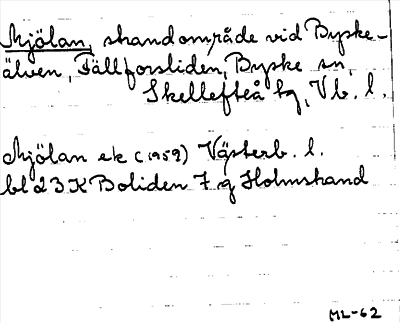 Mjölan, strandområde vid Byske-
älven, Fällforsliden, Byske sn,
Skellefteå tg, Vb. l.
Mjölan ek (1959) Västerb. l.
bl 23 K Boliden 7 g Holmstrand
ML-62